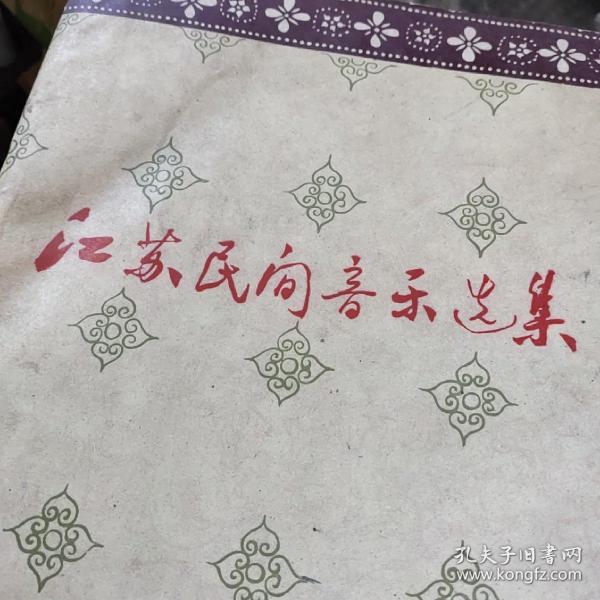 江苏民间音乐选集
孔夫子旧書网
www.kongfz.com